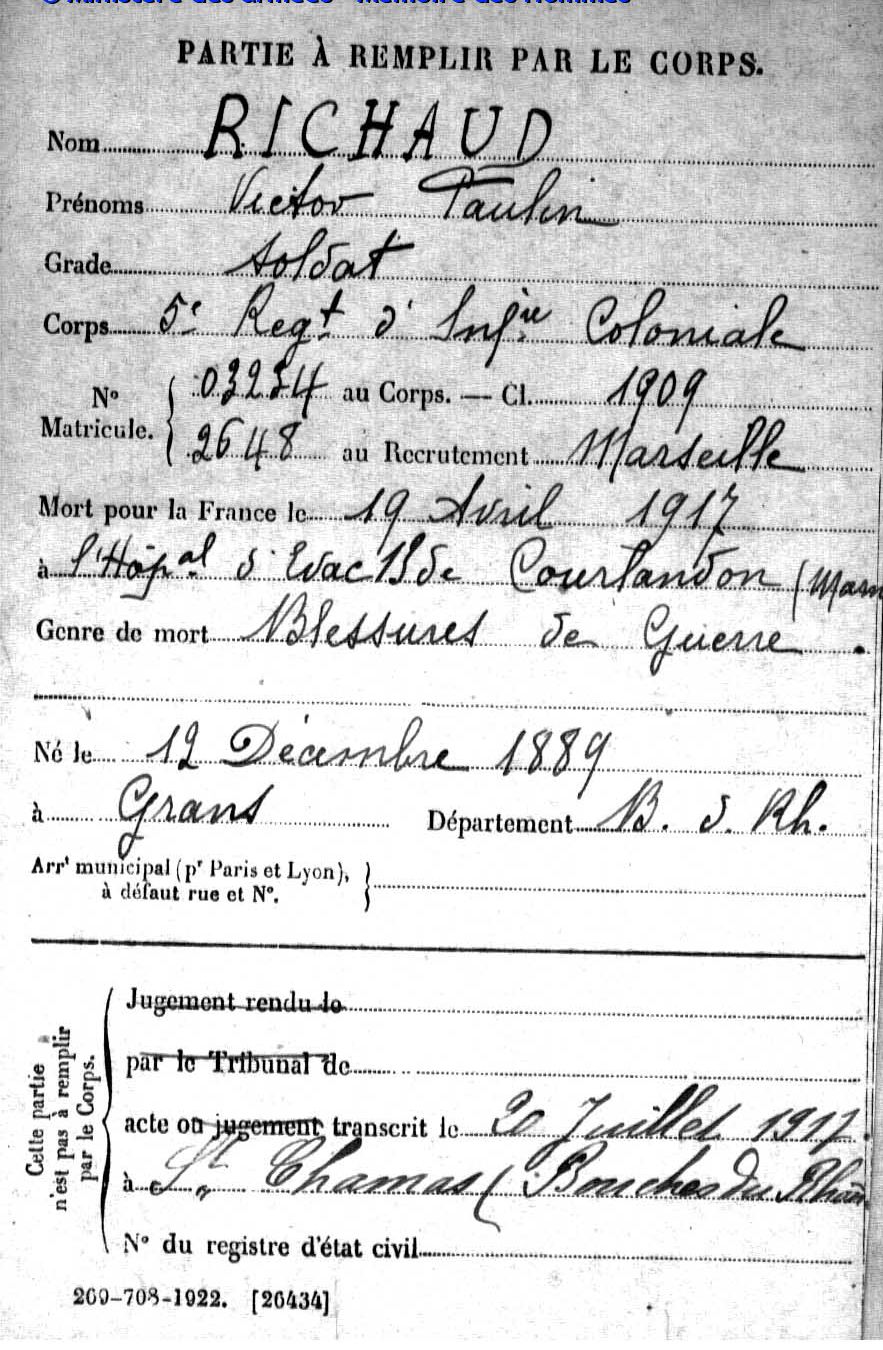 PARTIE À REMPLIR PAR LE CORPS.
Nom RICHAUD
Prénoms Victor Paulin
Grade Soldat
Corps 5e Regt d' Infie Coloniale
No 03234 au Corps. — Cl. 1909
Matricule. 2648 au Recrutement Marseille
Mort pour la France le 19 Avril 1917
à l'Hôpal d'Evac 15 de Courlandon (Marn
Genre de mort Blessures de Guerre.
Né le 12 Décembre 1889
à Grans Département B. d. Rh.
Arrt municipal (pr Paris et Lyon),
à défaut rue et No.
Cette partie
n'est pas à remplir
par le Corps.
Jugement rendu le
par le Tribunal de
acte ou jugement transcrit le 20 Juillet 1917.
à St Chamas (Bouches du Rhôn
No du registre d'état civil
269-708-1922. [26434]